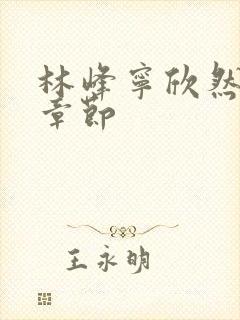 林峰寧欣然
章節
王永明